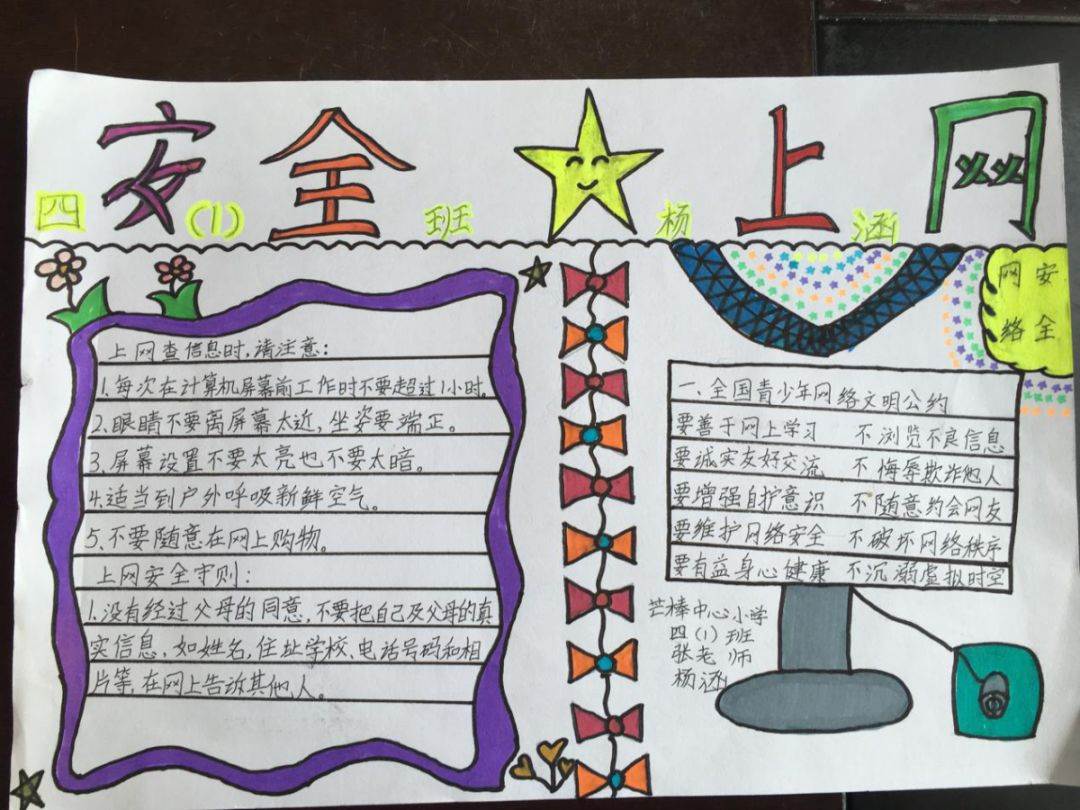 安全 上网
四(1)班 杨涵
上网查信息时,请注意:
1.每次在计算机屏幕前工作时不要超过1小时。
2.眼睛不要离屏幕太近,坐姿要端正。
3.屏幕设置不要太亮也不要太暗。
4.适当到户外呼吸新鲜空气。
5.不要随意在网上购物。
上网安全守则:
1.没有经过父母的同意,不要把自己及父母的真
实信息,如姓名,住址学校、电话号码和相
片等,在网上告诉其他人。
安全
网络
一、全国青少年网络文明公约
要善于网上学习 不浏览不良信息
要诚实友好交流 不侮辱欺诈他人
要增强自护意识 不随意约会网友
要维护网络安全 不破坏网络秩序
要有益身心健康 不沉溺虚拟时空
芒棒中心小学
四(1)班
张老师
杨涵